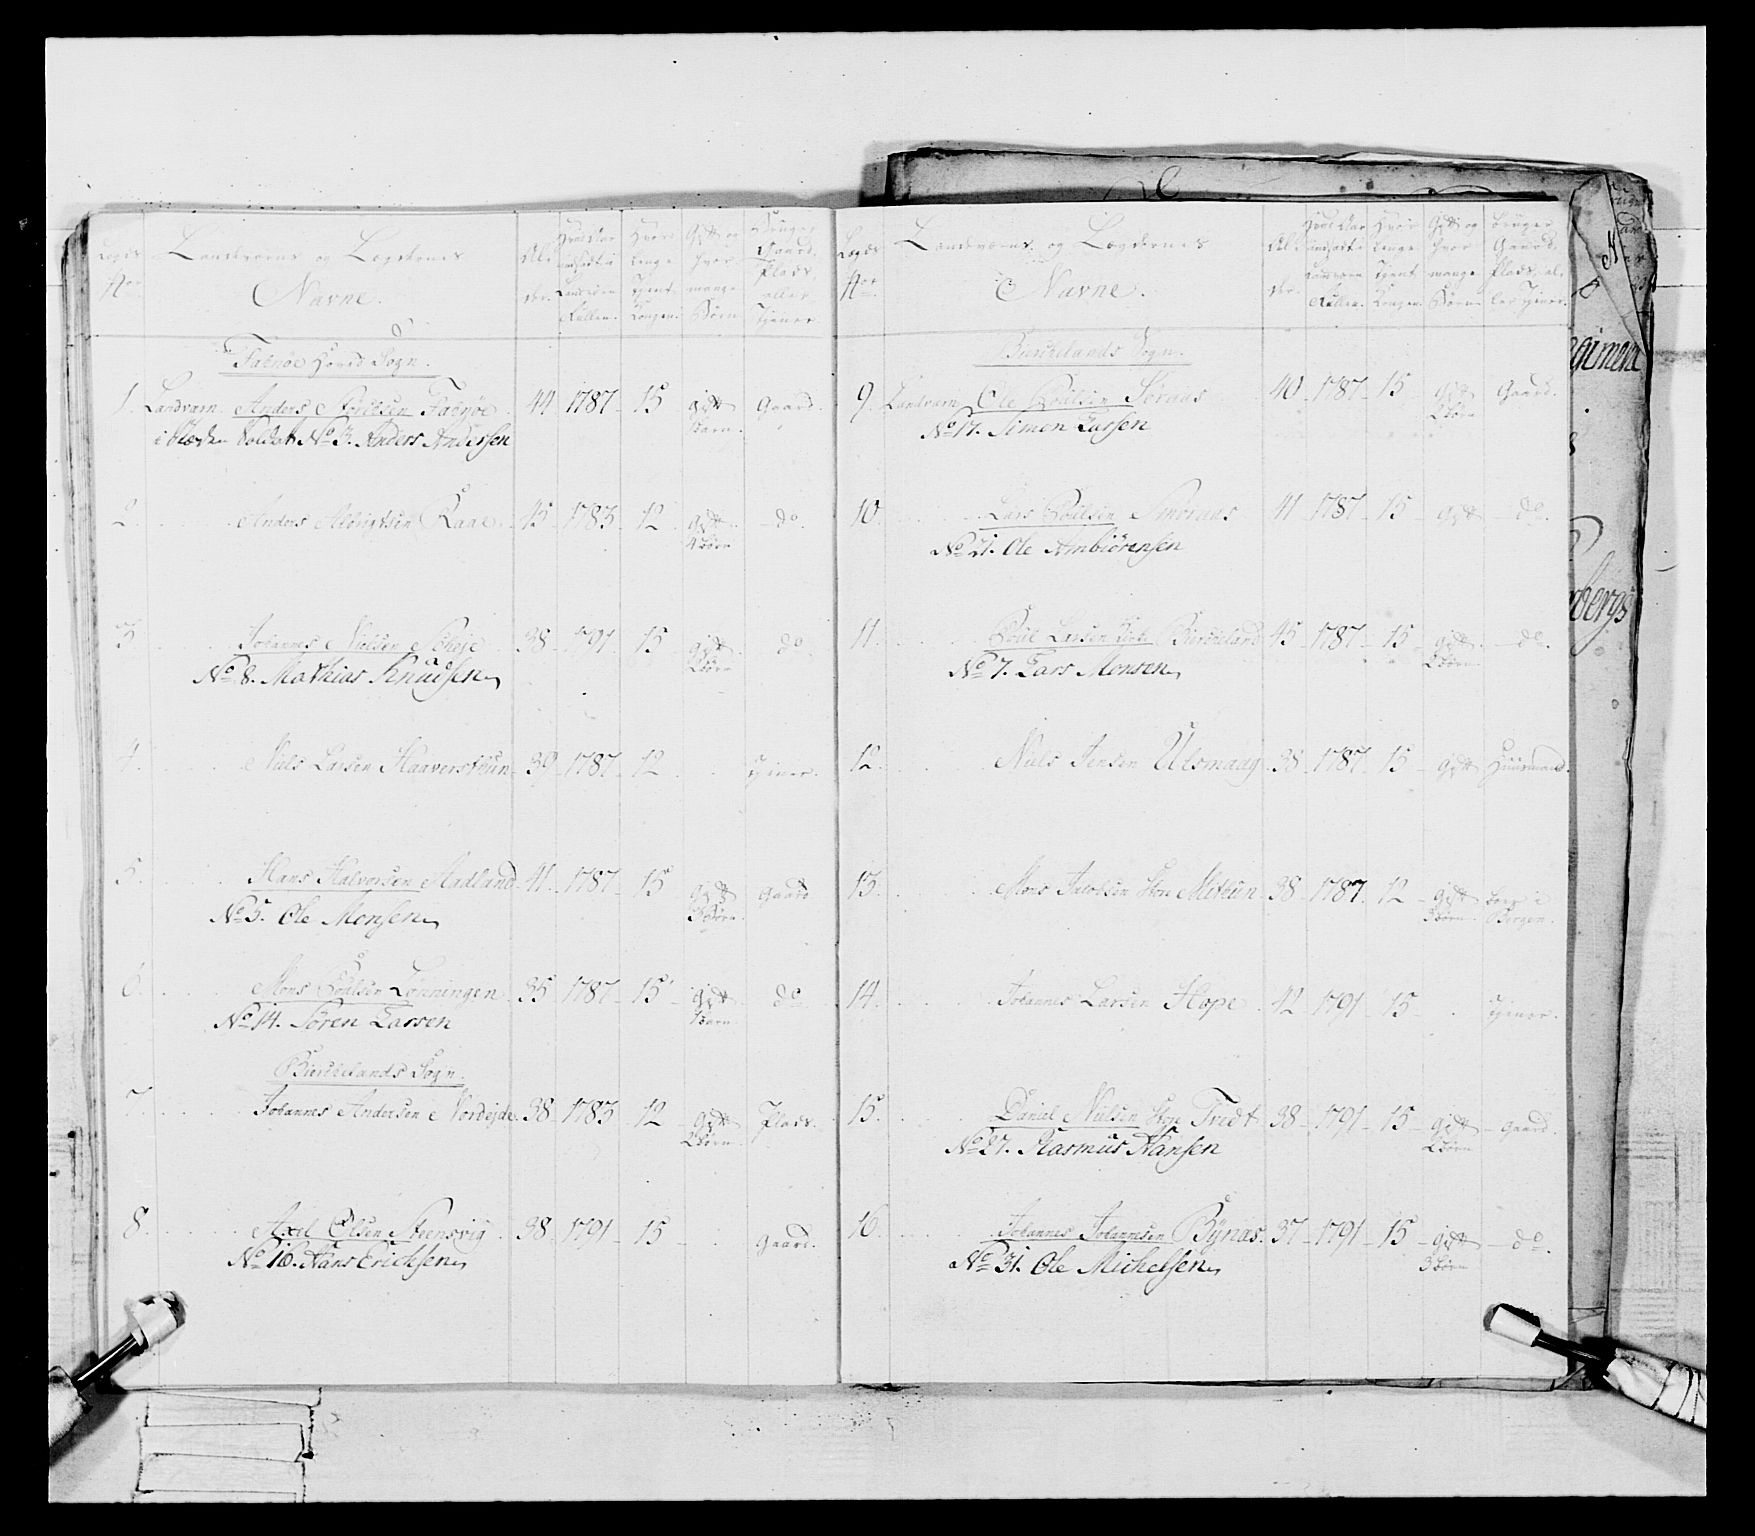 Lægds
No
Landværns og Lægdernes
Navne.
Al-
der.
Hvad Aar
indsatt i
Landværn
Rullen.
Hvor
længe
tjent
Kongen.
Gift og
hvor
mange
Børn
Bruger
Gaard,
Plads,
eller
tjener.
Fanøe Hoved Sogn.
1. Landværn Anders 44 1787 15 gift Gaard.
1 Barn.
Soldat No 3. Anders Andersen
2. Anders Kaae. 45 1783 12 gift do.
4 Børn
3. Johannes Nielsen 38 1791 15 gift do.
2 Børn
No 8. Mathias Knudsen
4. Niels Larsen Haaversthun 30 1787 12 tjener.
5. Hans Halvorsen Hadland 41 1787 15 gift Gaard
3 Børn.
No 5. Ole Monsen
6. Mons Poulsen Lønningen 35 1787 15 gift do
1 Barn.
No 14. Søren Larsen
Birchelands Sogn.
7. Johannes Andersen 38 1783 12 gift Plads.
2 Børn
8. Axel Olsen Steensvig 38 1791 15 Gaard.
No 16. Hans Ericksen
Lægds
No
Landværns og Lægdernes
Navne.
Al-
der.
Hvad Aar
indsatt i
Landværn
Rullen.
Hvor
længe
tjent
Kongen.
Gift og
hvor
mange
Børn
bruger
Gaard,
Plads, el-
ler tjener.
Birchelands Sogn.
9. Landværn Ole Poulsen 40 1787 15 gift Gaard.
2 Børn
No 17. Simon Larsen
10. Lars Poulsen Smøraas 41 1787 15 gift do.
No 21. Ole Ambiörensen
11. Poul Larsen Bircheland 45 1787 15 gift do.
2 Børn
No 7. Lars Monsen
12. Niels Jensen Ulsmaag 38 1787 15 gift Huusmand.
13. Mons Jacobsen Store Mildtun 38 1787 12 gift boer i
Børn. Bergen.
14. Johannes Larsen Hope 42 1791 15 tjener.
15. Daniel Nielsen Store Tvedt 38 1791 15 gift Gaard.
2 Børn
No 27. Rasmus Hansen
16. Johannes Johannesen Bÿnæs. 37 1791 15 gift do.
3 Børn
No 31. Ole Michelsen